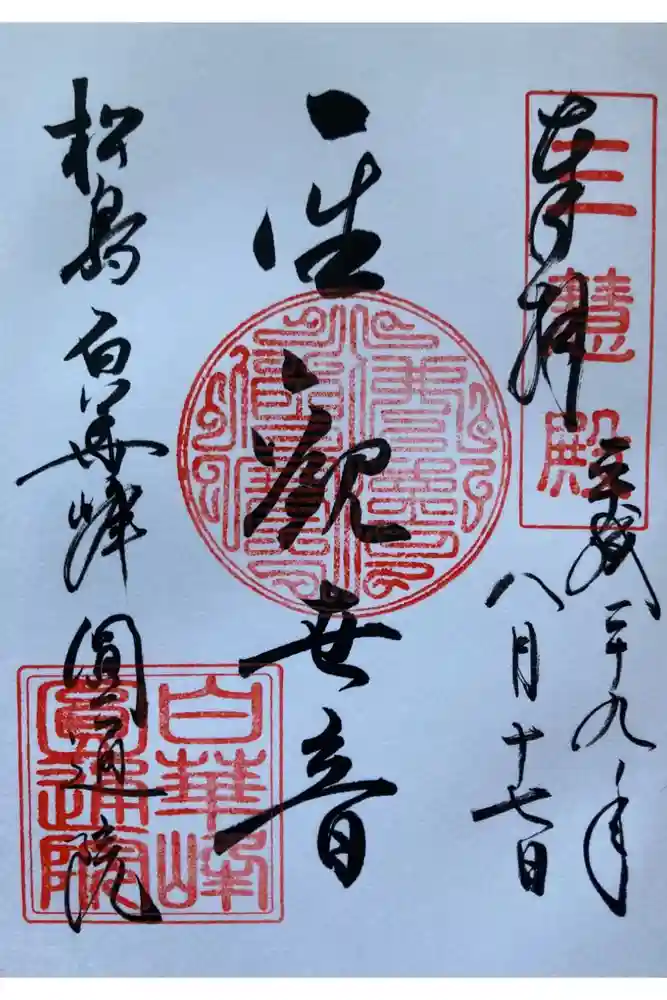 三慧殿
奉拝
平成二十九年
八月十七日
聖観世音
松島 白華峰 圓通院
白華峰
圓通院